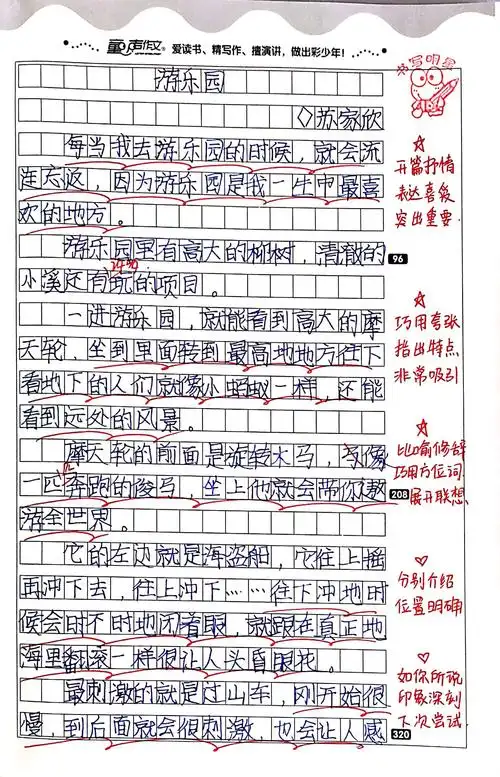 童声作文 爱读书、精写作、擅演讲，做出彩少年！
书写明星
游乐园
◇苏家欣
每当我去游乐园的时候，就会流
连忘返，因为游乐园是我一生中最喜
欢的地方。
游乐园里有高大的柳树，清澈的
小溪还有玩的项目。
一进游乐园，就能看到高大的摩
天轮，坐到里面转到最高地地方往下
看地下的人们就像小蚂蚁一样，还能
看到远处的风景。
摩天轮的前面是旋转木马，像
一匹奔跑的俊马，坐上他就会带你遨
游全世界。
它的左边就是海盗船，它往上摇
再冲下去，往上冲下……往下冲地时
候会时不时地闭着眼，就跟在真正地
海里翻滚一样很让人头昏眼花。
最刺激的就是过山车，刚开始很
慢，到后面就会很刺激，也会让人感
96
208
320
开篇抒情
表达喜爱
突出重要
巧用夸张
指出特点
非常吸引
比喻修辞
巧用方位词
展开联想
分别介绍
位置明确
如你所说
印象深刻
下次尝试